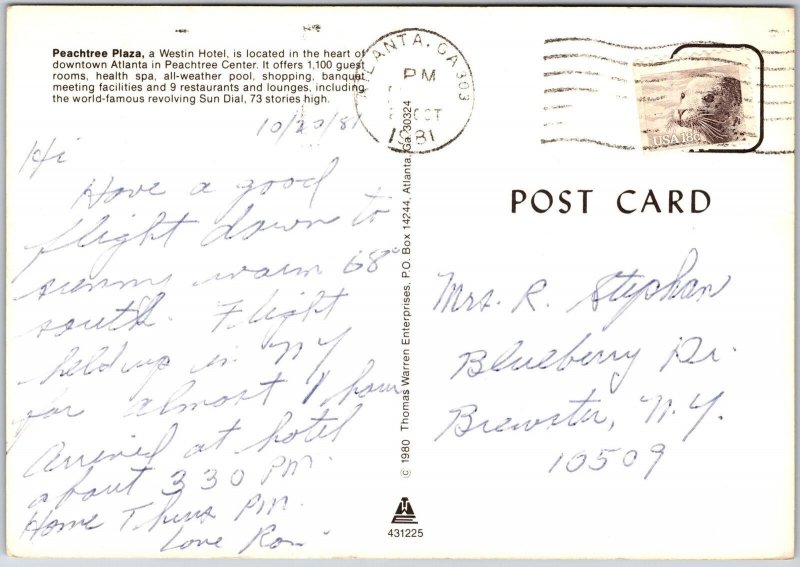 Peachtree Plaza, a Westin Hotel, is located in the heart of
downtown Atlanta in Peachtree Center. It offers 1,100 guest
rooms, health spa, all-weather pool, shopping, banquet
meeting facilities and 9 restaurants and lounges, including
the world-famous revolving Sun Dial, 73 stories high.
10/20/81
Hi
Have a good
flight down to
sunny warm 68°
south. Flight
held up in NY
for almost 1 hour
Arrived at hotel
about 3 30 PM.
Home Thurs PM.
Love Ron
© 1980 Thomas Warren Enterprises, P.O. Box 14244, Atlanta, Ga. 30324
431225
ATLANTA, GA 303
PM
OCT
1981
USA 18c
POST CARD
Mrs. R. Stephan
Blueberry Dr.
Brewster, N.Y.
10509